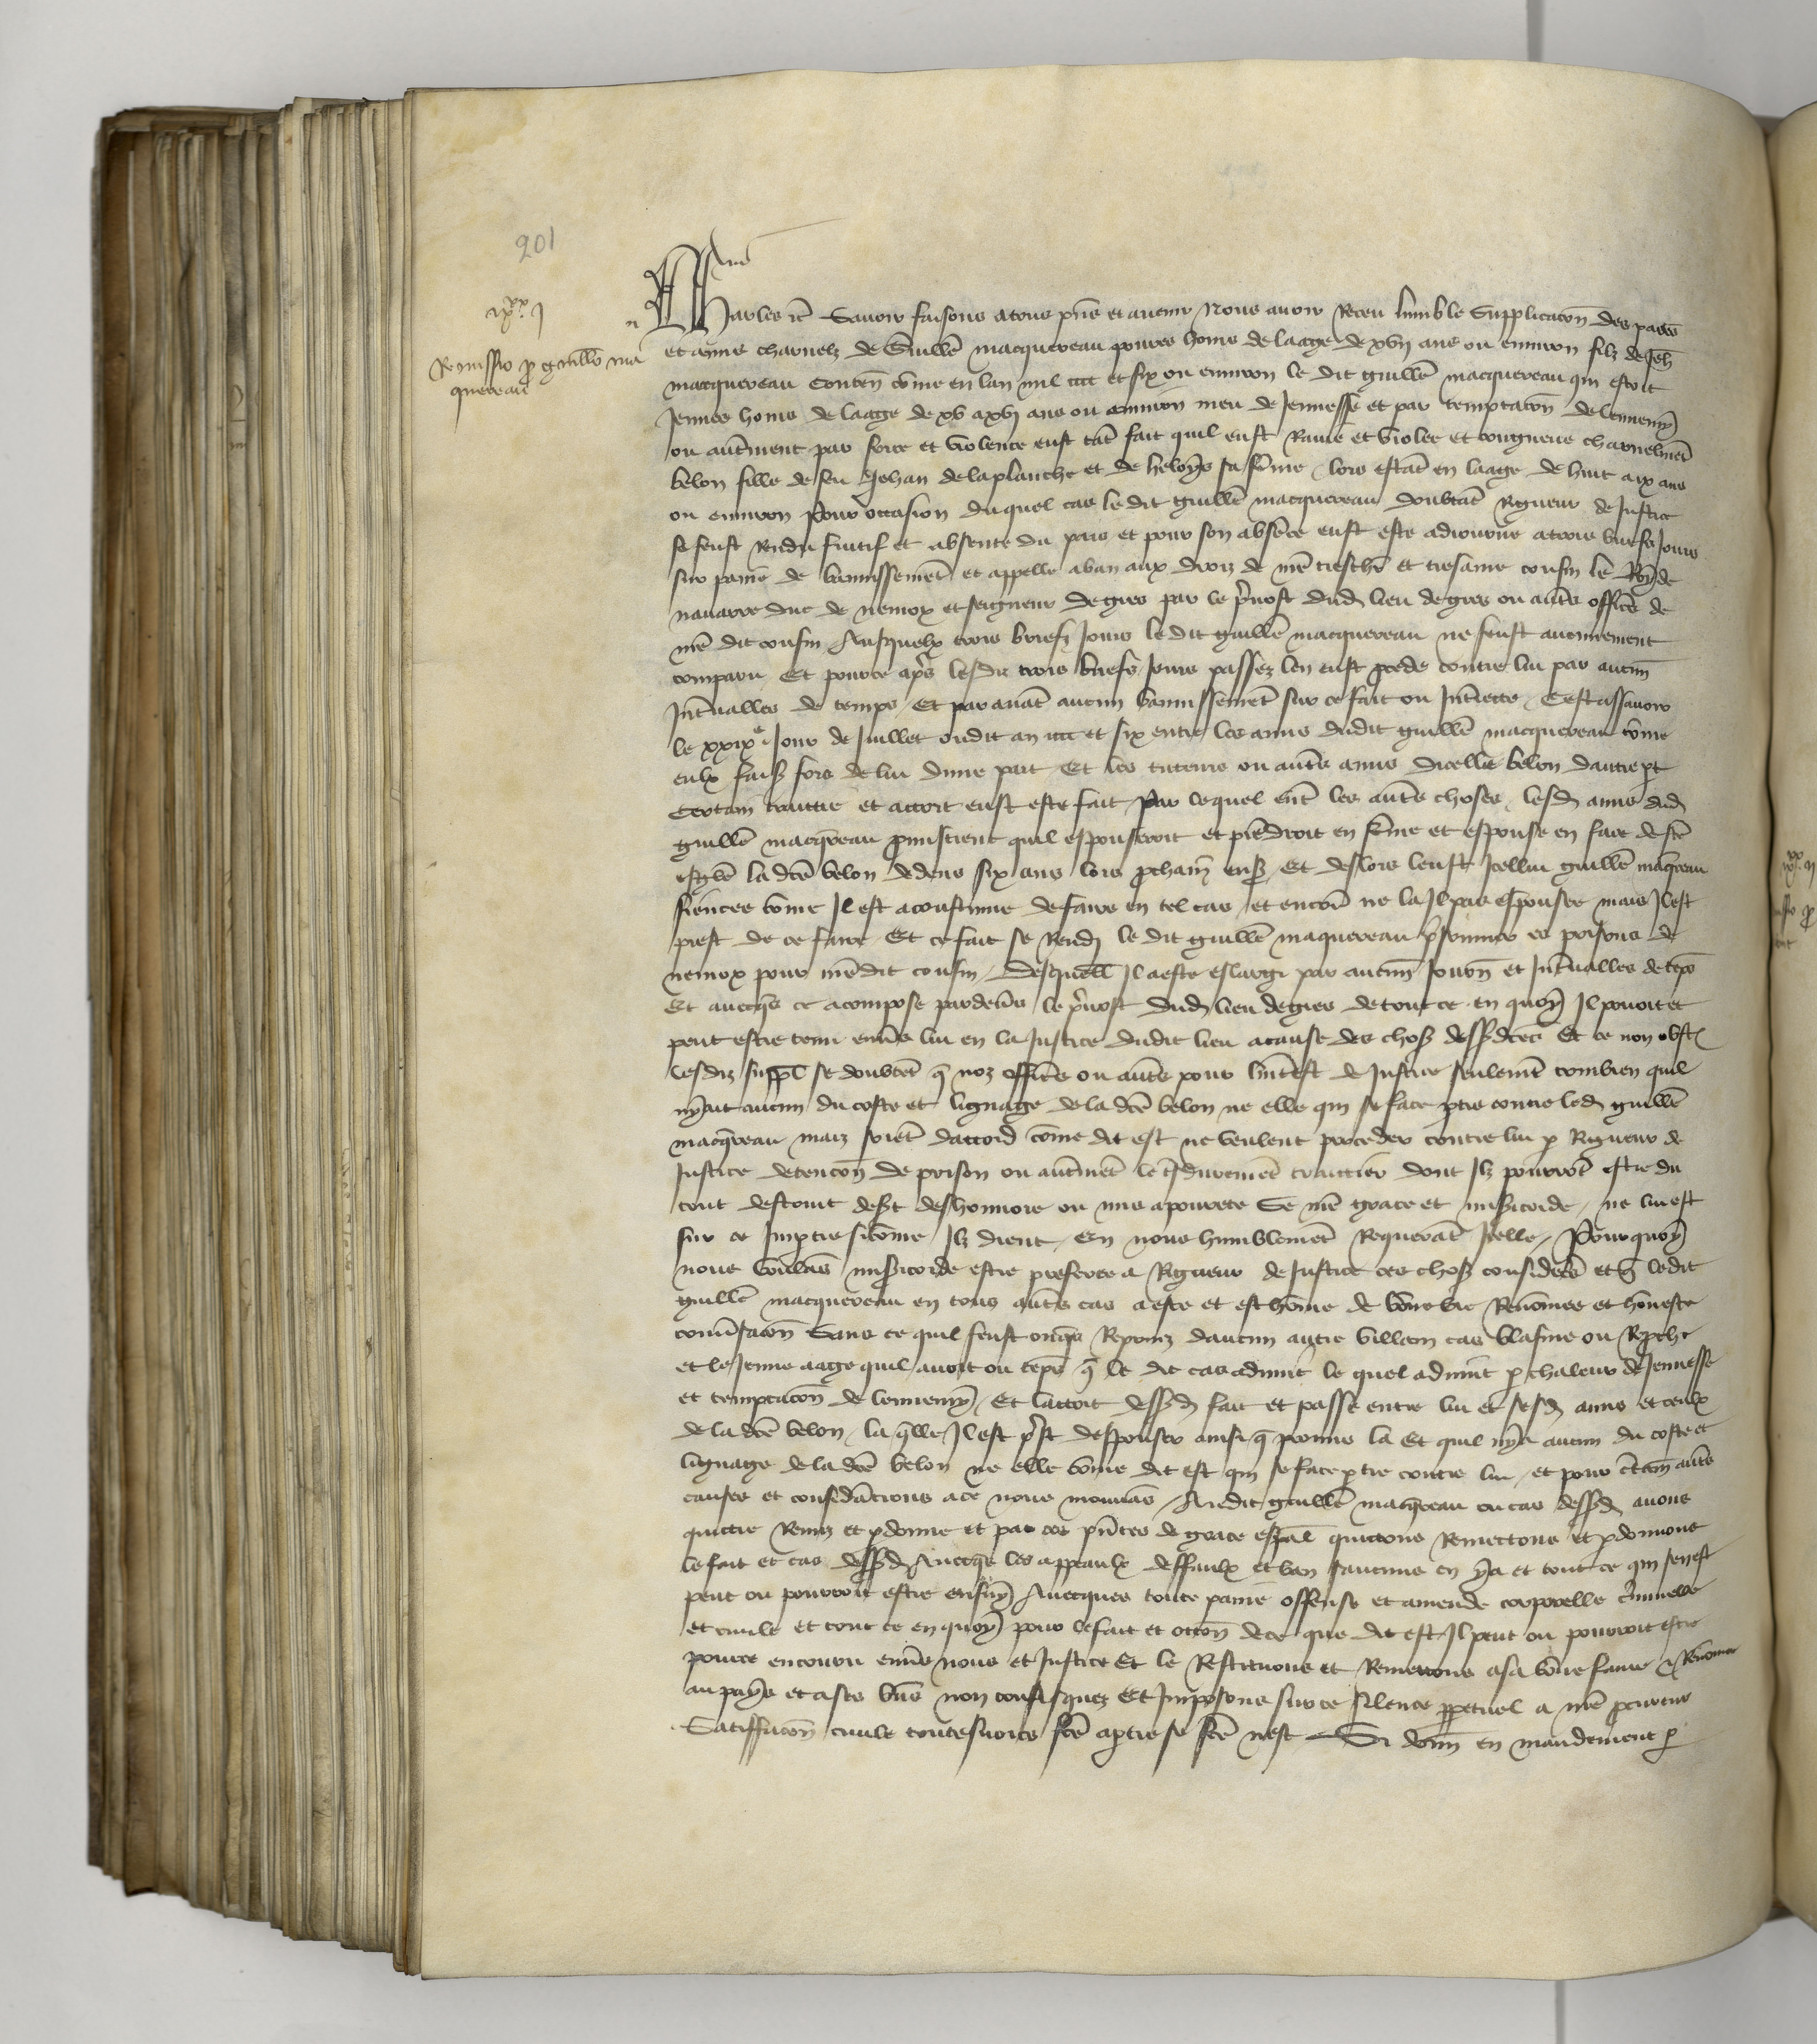 201
IXxx I
Remissio p guillo ma
quereau
Charles etc Savoir faisons a tous pñs et avenir Nous avoir Receu lumble Supplicacõn des parẽs
et amis charnelz de Guillẽ macquereau povres homs de laage de xvij ans ou environ filz de Jeh
macquereau contenͫ cõme en lan mil cccc et six ou environ le dit guillẽ macquereau qui estoit
Jeunes homs de laage de xv a xvj ans ou environ meu de Jennesse et par temptacõn de lennemy
ou autrͫment par force et violence eust tãt fait quil eust Ravie et violee et congneue charnelmẽt
belon fille de feu Jehan delaplanche et de heloys sa fẽme lors estãt en laage de huit a ix ans
ou environ Pour occasion duquel cas le dit guillẽ macquereau doubtãt Rigueur de Justice
se feust Rendu fuitif et absente du pais et pour son absẽce eust este adiourne a trois briefs Jours
sur paine de bannissemẽt et appelle a ban aux droiz de nrẽ treschr et tresame cousin le Roy de
navarre duc de nemox et seigneur de gres par le pvost dud lieu de gres ou autẽs officiẽs de
nrẽ dit cousin Ausquelx trois briefs Jours le dit guillẽ macquereau ne feust aucunement
comparu Et pource apẽs lesdiz trois briefs Jours passez len eust pcede contre lui par aucun
Intͫvalles de temps Et par avãt aucun bannissemẽt sur ce fait ou Intͫiette Cestassavoir
le xxixe Jour de Juillet oudit an cccc et six entre les amis dudit guillẽ macquereau cõme
eulx fais fors de lui dune part Et les tuteurs ou autẽs amis dicelle belon dautre pt
Certain traittie et accort eust este fait par lequel entͫ les autẽs choses lesd amis dud
guillẽ macqreau pmistrent quil espouseroit et prẽdroit en fẽme et espouse en face de stẽ
esglẽ la dcẽ belon dedens six ans lors pcham ens Et deslors leust Icellui guillẽ macqreau
fiencee cõme Il est acoustume de faire en tel cas et encorͫ ne la Il pas espousee mais Il est
prest de ce faire Et ce fait se Rendͫ le dit guillẽ maquereau psonnier es prisons de
nemox pour nrẽ dit cousin desquell Il a este eslargi par aucunͫ Jourͫ et Intͫvalles de tẽps
Et avecqs ce a compose pardevͫs le pvost dud lieu de gres de tout ce en quoy Il povoit et
peut estre tenu envͫs lui en la Justice dudit lieu a cause des chos dessdcẽs Et ce non obst
lesdiz suppl se doubtẽt q noz officẽs ou autẽs pour lintẽst de Justice seulemẽt combien quil
nyait aucun du coste et lignage de la dcẽ belon ne elle qui se face ptie contre led guillẽ
macqreau mais soiẽt daccord cõme dit est ne veulent proceder contre lui p Rigueur de
Justice detencõn de prison ou autͫmẽt le tsduremẽt traittier dont Ilz pourrõt estre du
tout destruit desͫt deshonnore ou mis a povrete Se nrẽ grace et misͫicorde ne lui est
sur ce Impartie sicõme Ilz dient En nous humblemẽt Requerãt Icelle Pourquoy
nous voulãs misͫicorde estre preferee a Rigueur de Justice ces chos considerẽs et q ledit
guillẽ macquereau en tous autẽs cas a este et est hõme de bõne vie Renõmee et hõneste
conuͫsacõn Sans ce quil feust onqs Reprins daucun autre villain cas blasme ou Rpche
et le Jeune aage quil avoit ou tẽps q le dit cas advint le quel advint p chaleur de Jennesse
et temptacõn de lennemy Et laccort dessd fait et passe entre lui et sesd amis et ceulx
de la dcẽ belon la qlle Il est pst despouser ainsi q promis la Et quil nya aucun du coste et
lignage de la dcẽ belon ne elle cõme dit est qui se face ptie contre lui et pour ctain autẽs
causes et considͫacions a ce nous mouvãs Audit guillẽ macqreau ou cas dessd avons
quittie Remis et pdonne et par ces pntes de grace espal quittons Remettons et pdonnons
le fait et cas dessd Avecqs les appeaulx deffaulx et ban saucuns en ya et tout ce qui sen est
peut ou pourroit estre ensuy Avecques toute paine offense et amende corporelle crͫminelle
et civile et tout ce en quoy pour le fait et occõn de ce que dit est Il peut ou pourroit estre
pource encouru envͫs nous et Justice Et le Restituons et Remettons a sa bõne fame et Renõmee
au pays et a ses bñs non confisquez Et Imposons sur ce silence ppetuel a nrẽ procureur
Satiffacõn civile toutesvoies fcẽ a ptie se fcẽ nest Si donͫn en mandement p